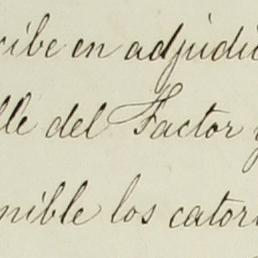 ribe en adjudic
lle del Factor y
nible los cator